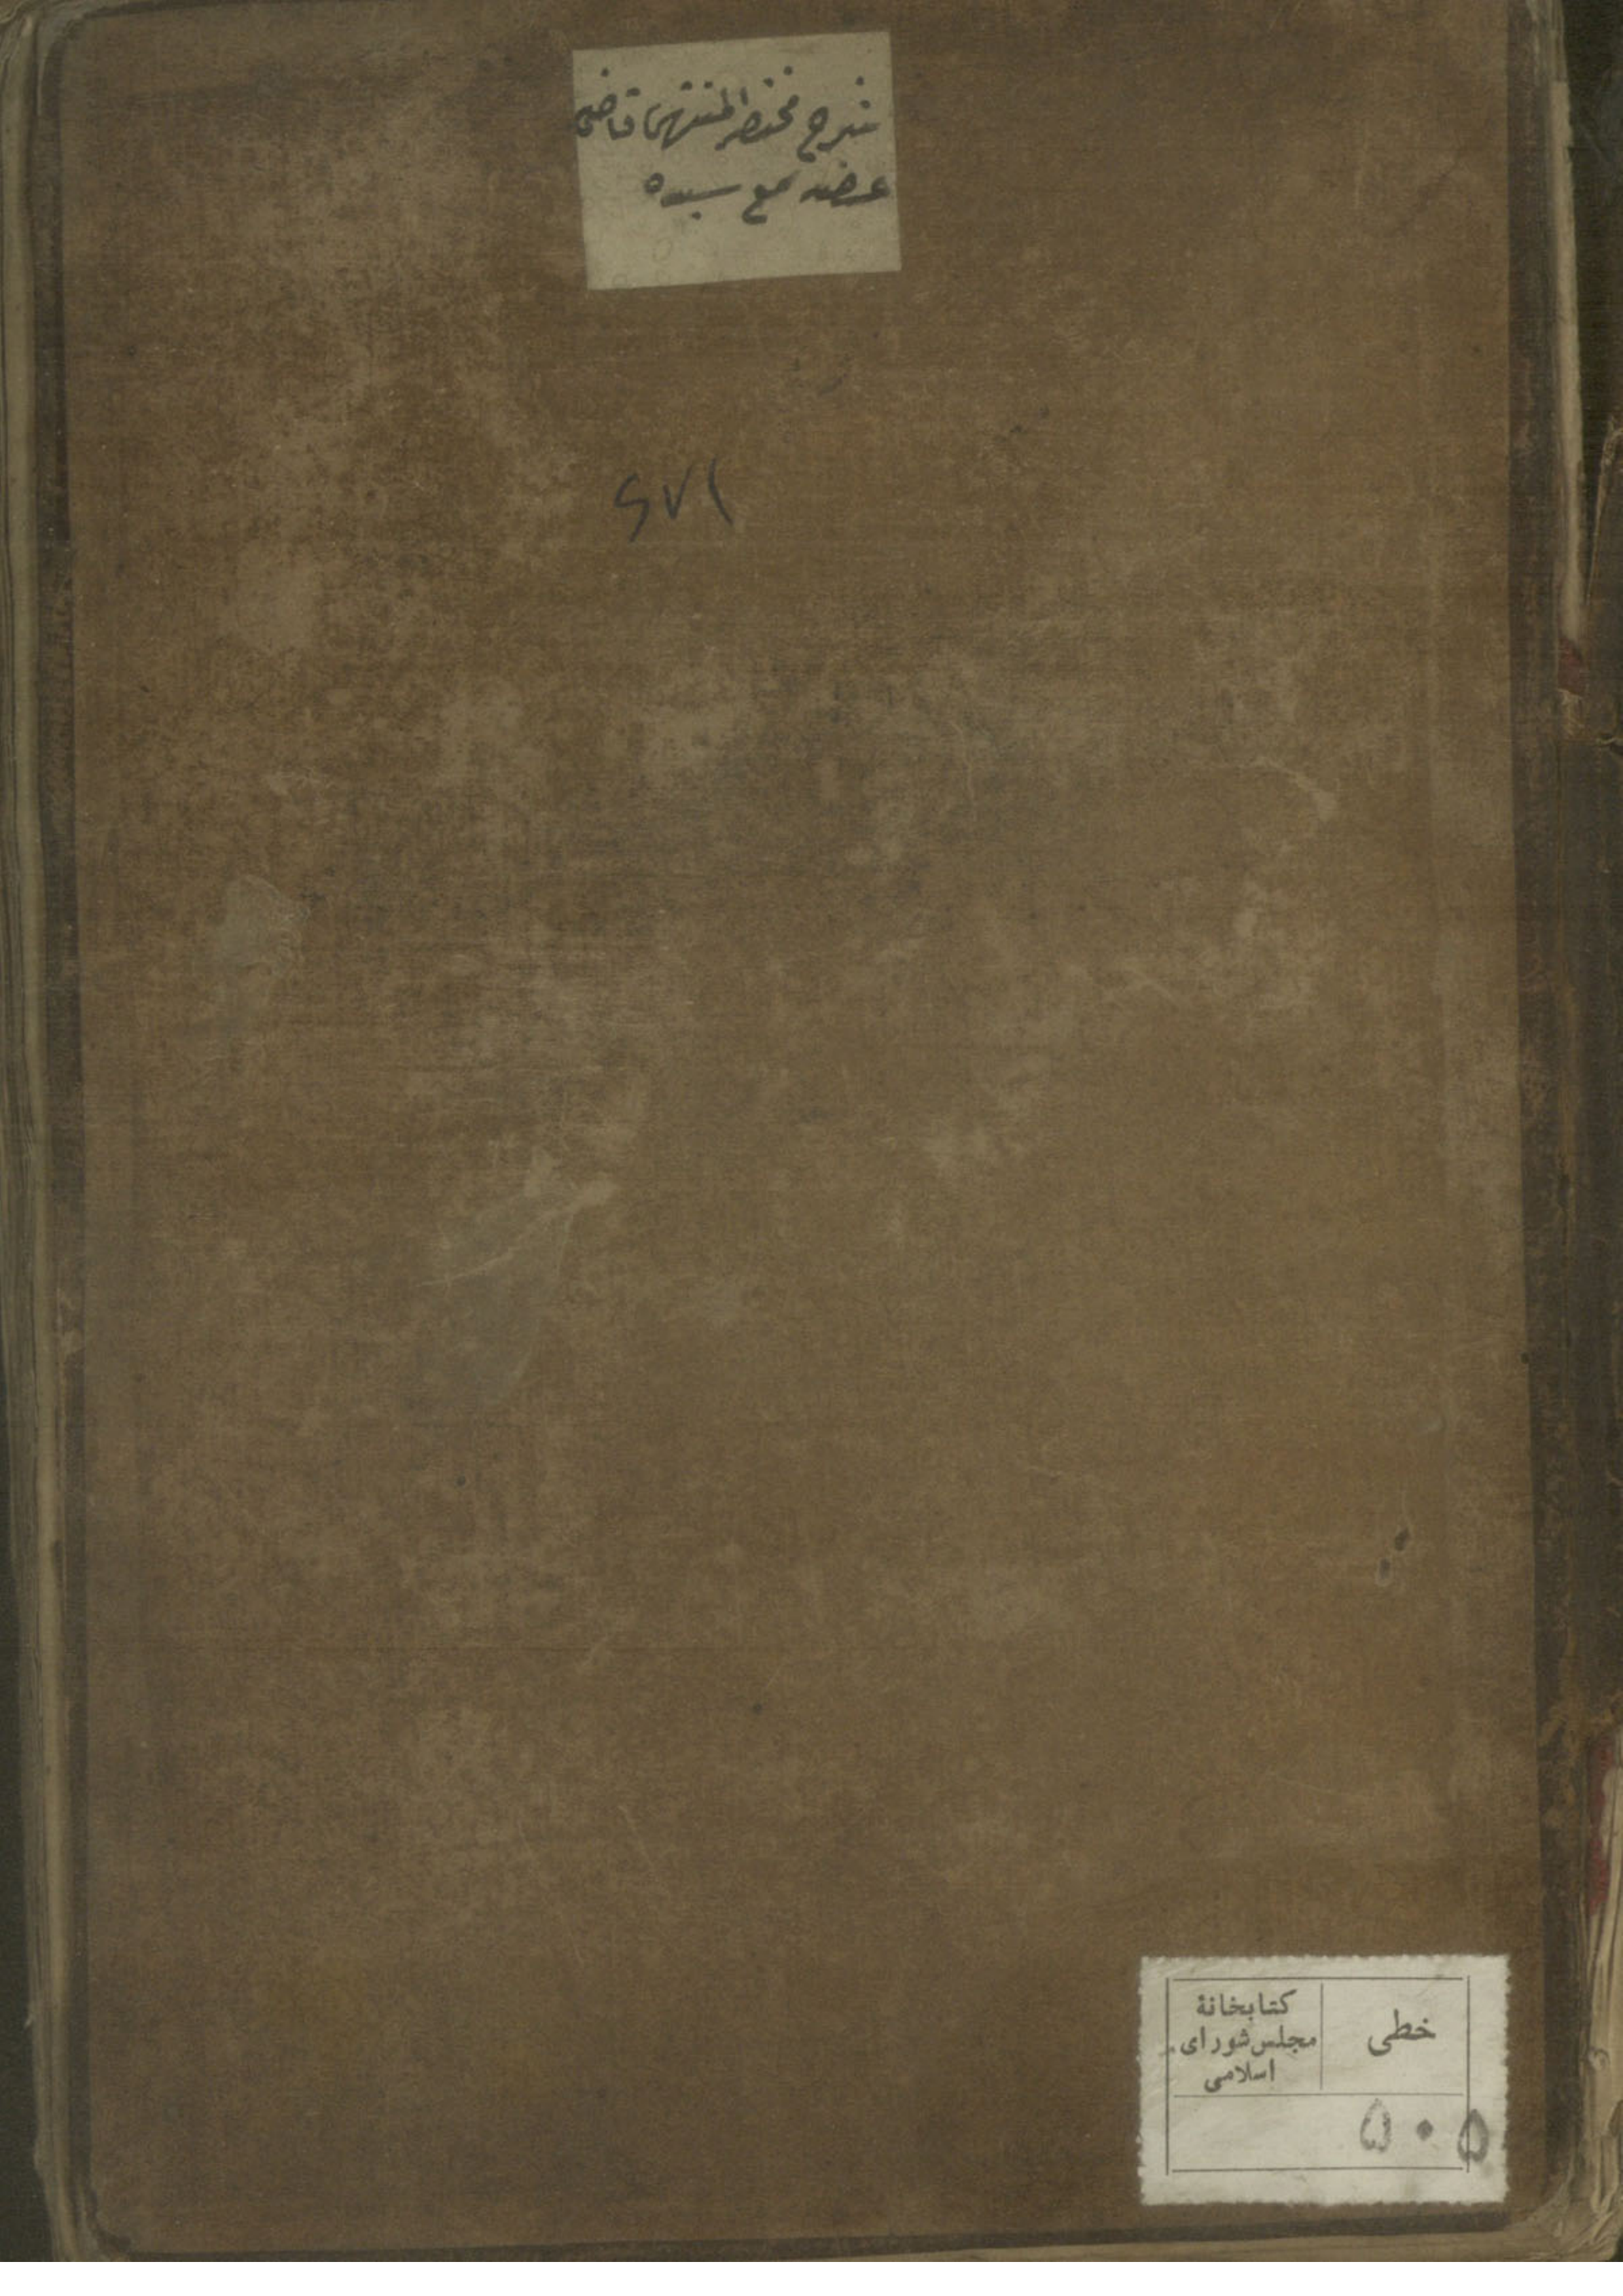 شرح مختصر المنتهی قاضی
عضد مع
۶۷۱
خطی
کتابخانهٔ
مجلس شورای
اسلامی
۵۰۵